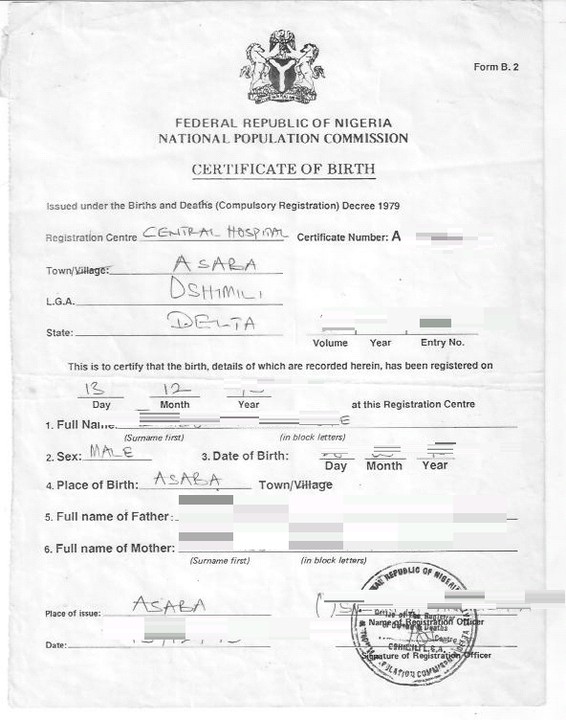 Form B. 2
FEDERAL REPUBLIC OF NIGERIA
NATIONAL POPULATION COMMISSION
CERTIFICATE OF BIRTH
Issued under the Births and Deaths (Compulsory Registration) Decree 1979
Registration Centre CENTRAL HOSPITAL Certificate Number: A
Town/Village: ASABA
L.G.A. OSHIMILI
State: DELTA
Volume Year Entry No.
This is to certify that the birth, details of which are recorded herein, has been registered on
13 12
Day Month Year at this Registration Centre
1. Full Name:
(Surname first) (in block letters)
2. Sex: MALE 3. Date of Birth:
Day Month Year
4. Place of Birth: ASABA Town/Village
5. Full name of Father:
6. Full name of Mother:
(Surname first) (in block letters)
REPUBLIC OF NIGERIA
Place of issue: ASABA
Office of The Registrar
Name of Registration Officer
Centre
Date:
L.G.A.
Signature of Registration Officer